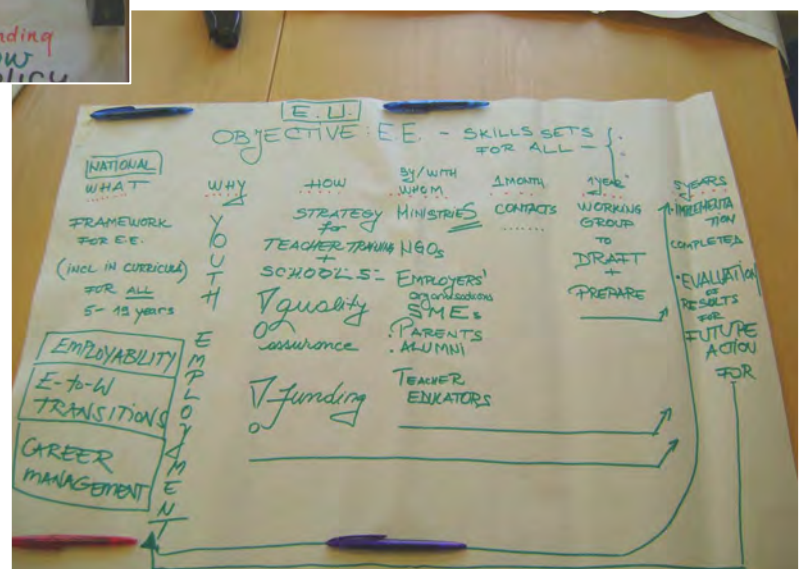 nding
OW
POLICY
E.U.
OBJECTIVE: E.E. - SKILLS SETS
FOR ALL -
NATIONAL
WHAT
FRAMEWORK
FOR E.E.
(INCL IN CURRICULA)
FOR ALL
5- 19 years
EMPLOYABILITY
E-to-W
TRANSITIONS
CAREER
MANAGEMENT
WHY
YOUTH
EMPLOYMENT
HOW
STRATEGY
for
TEACHER TRAINING
+
SCHOOLS-
quality
assurance
funding
BY/WITH
WHOM
MINISTRIES
NGOs
EMPLOYERS'
organisations
SMEs
. PARENTS
. ALUMNI
TEACHER
EDUCATORS
1 MONTH
CONTACTS
1 YEAR
WORKING
GROUP
TO
DRAFT
+
PREPARE
5 YEARS
• IMPLEMENTA
TION
COMPLETED
• EVALUATION
OF
RESULTS
FOR
FUTURE
ACTION
FOR